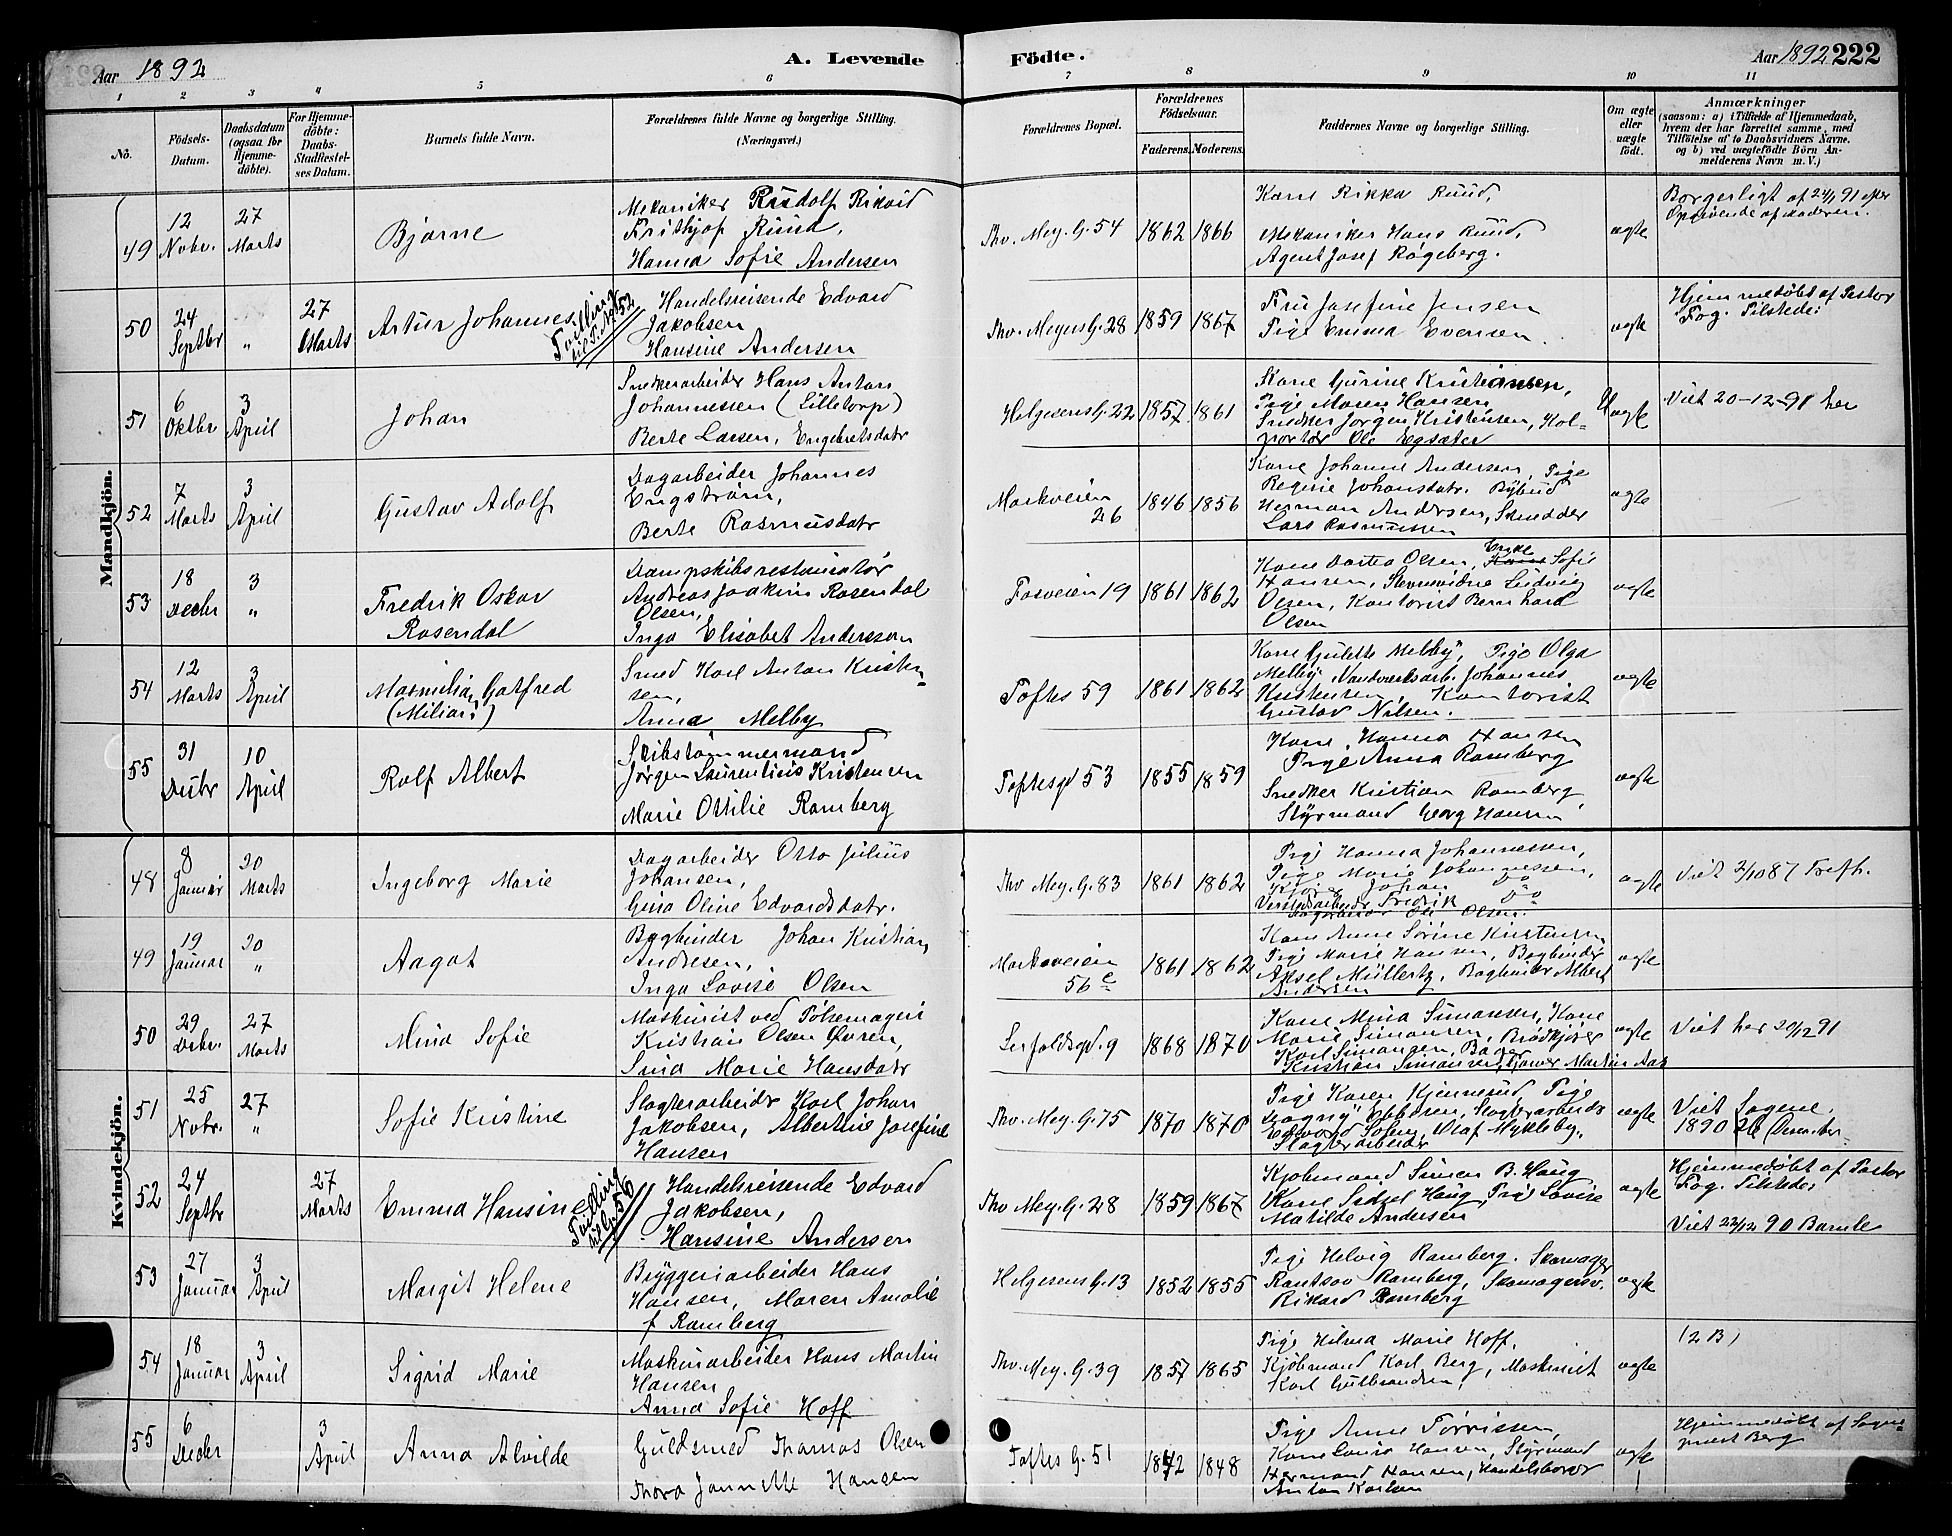 Aar 1892
A. Levende
Födte.
Aar 1892 222
1 2 3 4 5 6 7 8 9 10 11
No.
Födsels-
Datum.
Daabsdatum
(ogsaa for
Hjemme-
döbte).
For Hjemme-
döbte:
Daabs-
Stadfæstel-
ses Datum.
Barnets fulde Navn.
Forældrenes fulde Navne og borgerlige Stilling.
(Næringsvei.)
Forældrenes Bopæl.
Forældrenes
Födselsaar.
Faderens. Moderens.
Faddernes Navne og borgerlige Stilling.
Om ægte
eller
uægte
födt.
Anmærkninger
(saasom: a) i Tilfælde af Hjemmedaab,
hvem der har forrettet samme, med
Tilföielse af to Daabsvidners Navne.
og b) ved uægtefödte Börn An-
melderens Navn m. V.)
Mandkjön.
49
12
Novbr.
27
Marts
Bjarne
Mekaniker Rudolf Rikard
Frithjof Ruud,
Hanna Sofie Andersen
Thv. Mey. G. 54
1862 1866
Kone Rikka Ruud,
Mekaniker Hans Ruud,
Agent Josef Røgeberg.
ægte
Borgerligt af 24/1 91 efter
Opgivende af Moderen.
50
24
Septbr
"
27
Marts
Artur Johannes
Tvilling
til F. No 52
Handelsreisende Edvard
Jakobsen
Hansine Andersen
Thv. Meyers G. 28
1859 1867
Fru Josefine Jensen
Pige Emma Evensen.
ægte
Hjemmedøbt af Pastor
Fog. Tilstede:
51
6
Oktbr
3
April
Johan
Snedkerarbeider Hans Anton
Johannessen (Lilletorp)
Berte Larsen, Engebretsdatr
Helgesens G. 22
1857 1861
Kone Gurine Kristiansen,
Pige Maren Hansen
Snedker Jørgen Kristensen, Kol-
portør Ole Egsæter
Uægte
Viet 20-12-91 her
52
7
Marts
3
April
Gustav Adolf
Dagarbeider Johannes
Engstrøm,
Berte Rasmusdatr
Markveien
26
1846 1856
Kone Johanne Andersen, Pige
Regine Johansdatr. Bybud
Herman Andersen, Skrædder
Lars Rasmussen
ægte
53
18
Decbr
3
"
Fredrik Oskar
Rosendal
Dampskibsrestauratør
Andreas Joakim Rosendal
Olsen,
Inga Elisabet Andersson
Fosveien 19
1861 1862
Kone Dortea Olsen, Enke Sofie
Hansen, Stevnevidne Ludvig
Olsen, Kontorist Bernhard
Olsen
ægte
54
12
Marts
3
April
Maxmilian Gotfred
(Milian:)
Smed Karl Anton Kristen-
sen,
Anna Melby
Toftes 59
1861 1862
Kone Gulette Melby, Pige Olga
Melby, Vandværksarb. Johannes
Kristensen, Kontorist
Gustav Nilsen.
ægte
55
31
Decbr
10
April
Rolf Albert
Skibstømmermand
Jørgen Laurentius Kristensen
Marie Ottilie Ramberg
Toftesgd 53
1855 1859
Kone, Hanna Hansen
Pige Anna Ramberg
Snedker Kristian Ramberg,
Styrmand Georg Hansen
ægte
Kvindekjön.
48
8
Januar
20
Marts
Ingeborg Marie
Dagarbeider Otto Julius
Johansen,
Gina Oline Edvardsdatr.
Thv Mey. G. 83
1861 1862
Pige Hanna Johannessen,
Pige Marie Johannessen,
Johan Do
Fredrik Do
Ole Olsen.
ægte
Viet 2/10 87 Trefh.
49
19
Januar
20
"
Aagot
Bogbinder Johan Kristian
Andresen,
Inga Lovise Olsen
Markveien
56 c
1861 1862
Kone Anne Sørine Kristensen
Pige Marie Hansen, Bogbinder
Aksel Müllertz, Bogbinder Albert
Andersen
ægte
50
29
Decbr.
27
Marts
Mina Sofie
Maskinist ved
Kristian Olsen
Sina Marie Hansdatr
9
1868 1870
Kone Mina Simonsen, Kone
Marie Simonsen, Brødkjører
Karl Simonsen, Bager
Kristian Simonsen, Martin Aas
ægte
Viet her 20/12 91
51
25
Novbr.
27
"
Sofie Kristine
Slagterarbeider Karl Johan
Jakobsen, Albertine Josefine
Hansen
Thv. Mey. G. 75
1870 1870
Pige Karen Kjennerud, Pige
Dagny Ebbesen, Slagterarbeider
Edvard Olaf Mykleby,
Slagterarbeider
ægte
Viet Sogene.
1890
52
24
Septbr
27
Marts
Emma Hansine
Tvilling
til G. 50
Handelsreisende Edvard
Jakobsen,
Hansine Andersen
Thv Mey. G. 28
1859 1867
Kjøbmand Simen B. Haug
Kone Sedsel Haug, Pige Lovise
Matilde Andersen
ægte
Hjemmedøbt af Pastor
Fog. Tilstede:
Viet 22/12 90 Bamle
53
27
Januar
3
April
Margit Helene
Bryggeriarbeider Hans
Hansen, Maren Amalie
f Ramberg
Helgesens G. 13
1852 1855
Pige Helvig Ramberg. Skomager
Rantsov Ramberg, Skomagersv.
Rikard Ramberg
ægte
54
18
Januar
3
April
Sigrid Marie
Maskinarbeider Hans Martin
Hansen
Anna Sofie Hoff
Thv. Mey. G. 39
1857 1865
Pige Hilma Marie Hoff,
Kjøbmand Karl Berg, Maskinist
Karl Gulbrandsen,
ægte
(2 B)
55
6
Decbr
3
April
Anna Alvilde
Guldsmed Thomas Olsen
Thora Jannette Hansen
Toftes G. 51
1842 1848
Pige Anne Torrissen,
Kone Lovise Hansen, Styrmand
Hermand Hansen, Handelsborger
Anton Karlsen
ægte
Hjemmedøbt af Sogne-
præst Berg